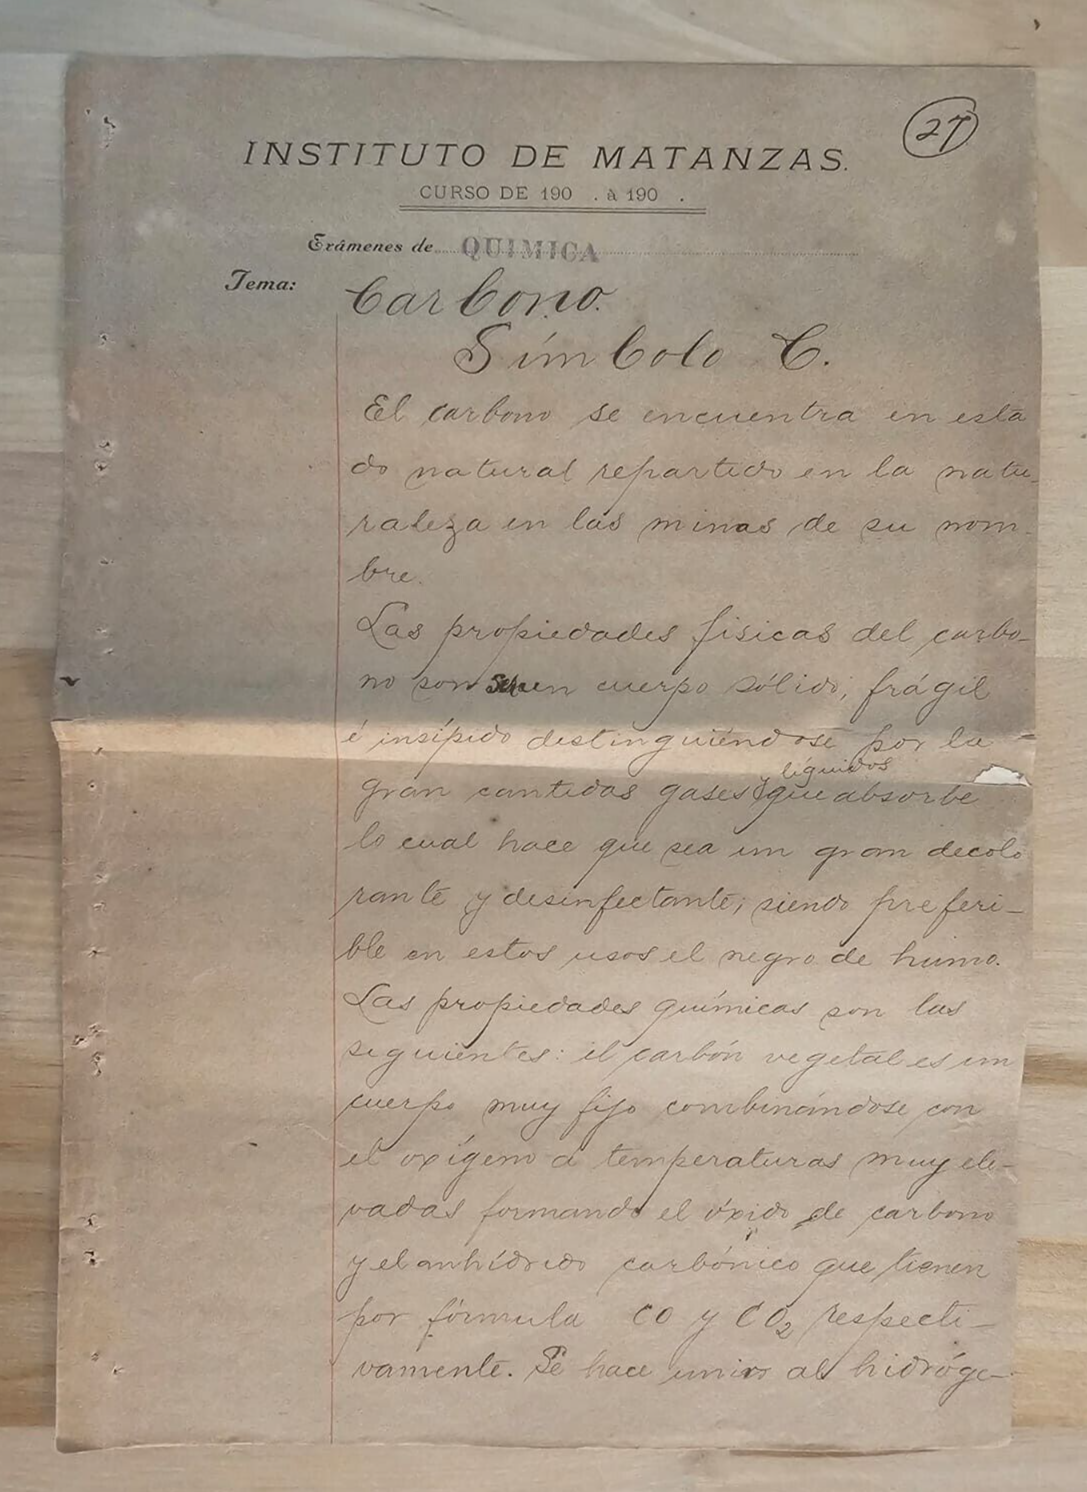 27
INSTITUTO DE MATANZAS.
CURSO DE 190 . à 190 .
Exámenes de QUIMICA
Tema: Carbono.
Símbolo C.
El carbono se encuentra en esta
do natural repartido en la natu-
raleza en las minas de su nom-
bre.
Las propiedades fisicas del carbo-
no son un cuerpo sólido, frágil
é insípido destinguiéndose por la
líquidos
gran cantidas gases y que absorbe
lo cual hace que sea un gran decolo
rante y desinfectante; siendo preferi-
ble en estos usos el negro de humo.
Las propiedades químicas son las
siguientes: el carbón vegetal es un
cuerpo muy fijo combinándose con
el oxígeno a temperaturas muy ele-
vadas formando el óxido de carbono
y el anhídrido carbónico que tienen
por fórmula CO y CO₂ respecti-
vamente. Se hace unir al hidróge-